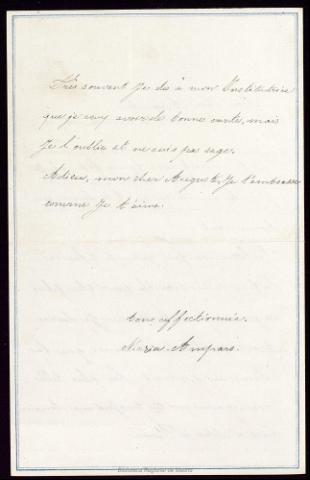 Très souvent Je dis à mon Institutrice
que je veux avoir de bonne note, mais
Je l'oublie et ne suis pas sage.
Adieu, mon cher Auguste, Je t'embrasse
comme Je t'aime.
affectionnée.
Maria Amparo.
Biblioteca Regional de Madrid